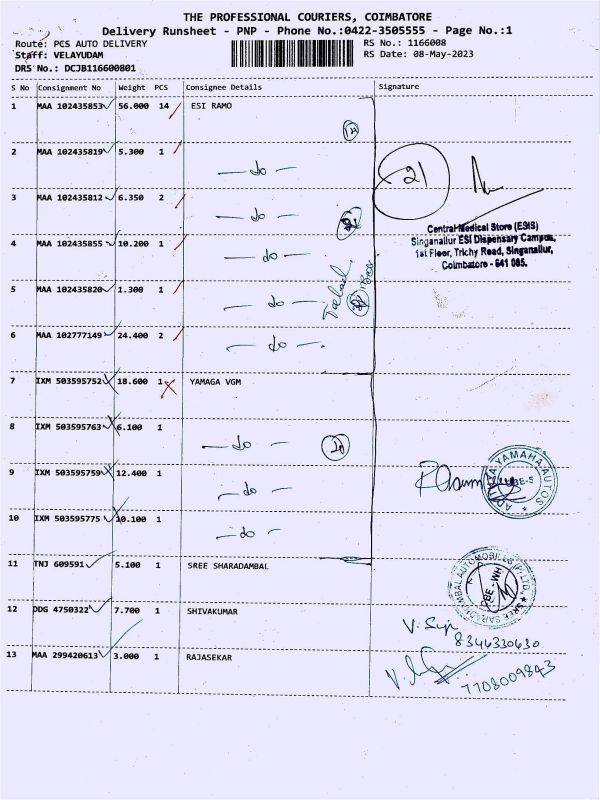 THE PROFESSIONAL COURIERS, COIMBATORE
Delivery Runsheet - PNP - Phone No.:0422-3505555 - Page No.:1
Route: PCS AUTO DELIVERY RS No.: 1166008
Staff: VELAYUDAM RS Date: 08-May-2023
DRS No.: DCJB116600801
S No Consignment No Weight PCS Consignee Details Signature
1 MAA 102435853 56.000 14 ESI RAMO
2 MAA 102435819 5.300 1 — do —
3 MAA 102435812 6.350 2 — do —
4 MAA 102435855 10.200 1 — do —
5 MAA 102435820 1.300 1 — do —
6 MAA 102777149 24.400 2 — do —
21
Central Medical Store (ESIS)
Singanallur ESI Dispensary Campus,
1st Floor, Trichy Road, Singanallur,
Coimbatore - 641 005.
7 IXM 503595752 18.600 1 YAMAGA VGM
8 IXM 503595763 6.100 1 — do —
9 IXM 503595759 12.400 1 — do —
10 IXM 503595775 10.100 1 — do —
YAMAHA AUTOS
11 TNJ 609591 5.100 1 SREE SHARADAMBAL
AUTOMOBILES (P) LTD.
12 DDG 4750322 7.700 1 SHIVAKUMAR
8344330630
13 MAA 299420613 3.000 1 RAJASEKAR
7708009843